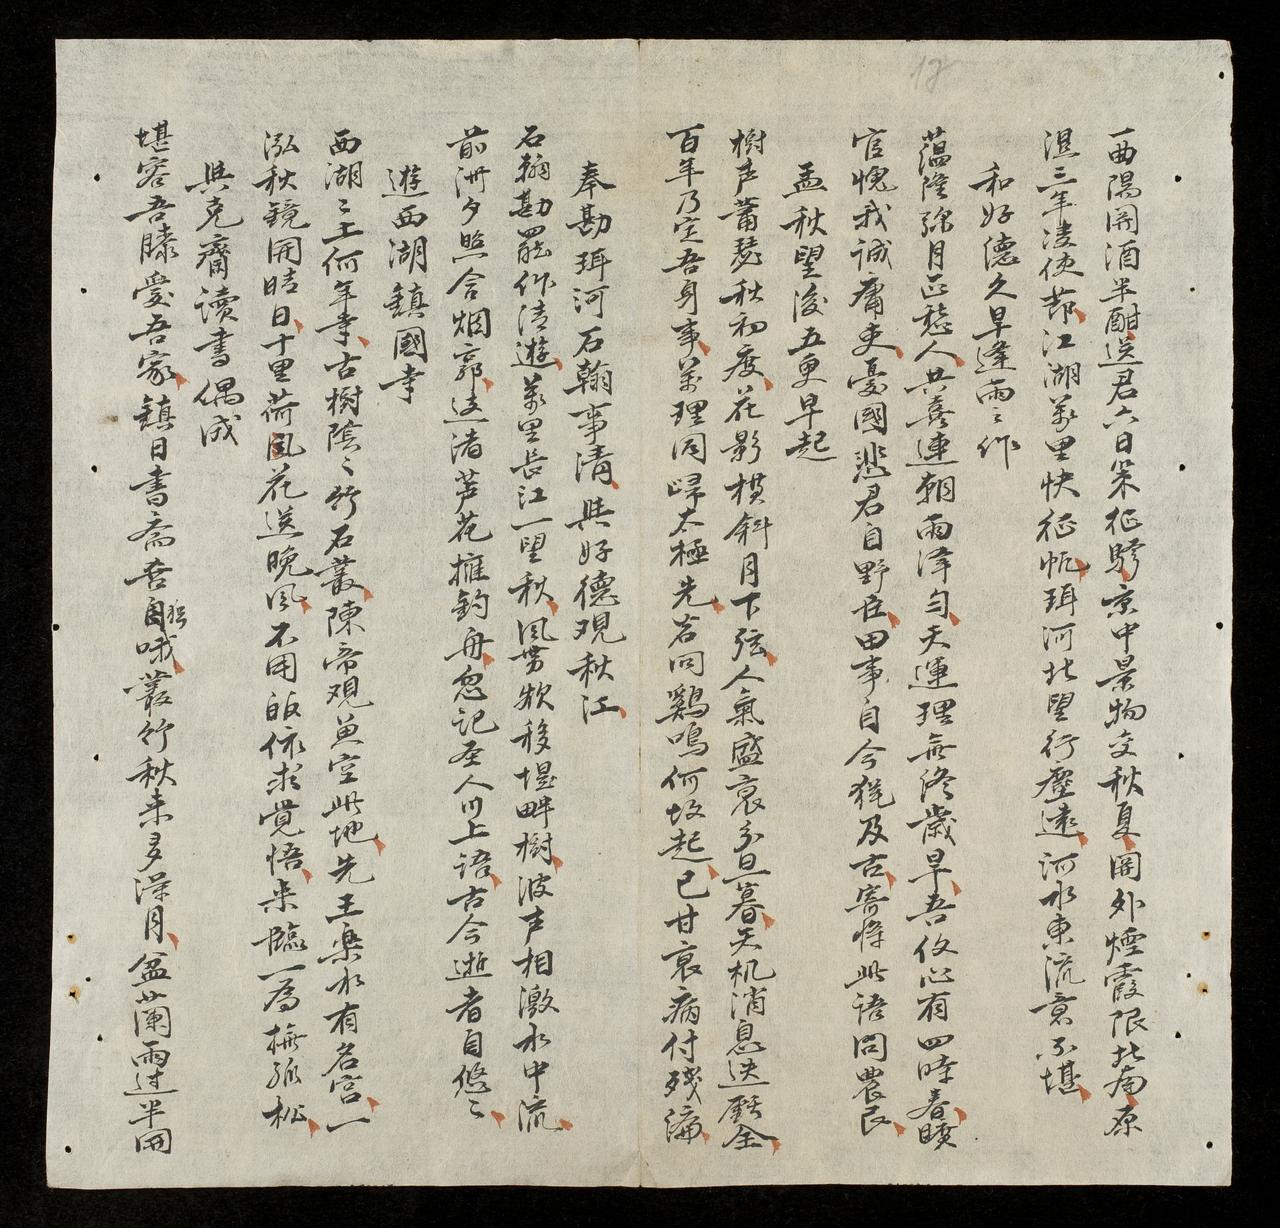 一曲陽関酒半酣送君六日策征驂京中景物交秋夏関外煙霞限北南原
湿三年凌使節江湖萬里快征帆珥河北望行塵遠河水東流意不堪
和好德久旱逢雨之作
蘊隆弥月正愁人共喜連朝雨澤匀天運理無終歳旱吾侬心有四時春曠
官愧我誠庸吏憂國悲君自野臣田事自今猶及古寄将此語問農民
孟秋望後五更早起
樹声蕭瑟秋初度花影横斜月下弦人氣盛衰分旦暮天机消息迭歴全
百年乃定吾身事萬理同歸太極先若問鷄鳴何故起已甘衰病付残編
奉勘珥河石翰事清與好德观秋江
石翰勘罷作清遊萬里長江一望秋風勢欲移堤畔樹波声相激水中流
前洲夕照含烟郭遠渚芦花擁釣舟忽記圣人川上語古今逝者自悠々
遊西湖鎮國寺
西湖湖上何年寺古樹陰々竹石叢陳帝观魚空此地先王樂水有名宮一
泓秋鏡開晴日十里荷風花送晚風不用皈依求覚悟来臨一為撫孤松
與克齋讀書偶成
堪容吾膝愛吾家鎮日書斋吾自哦叢竹秋来多澡月盆蘭雨过半開